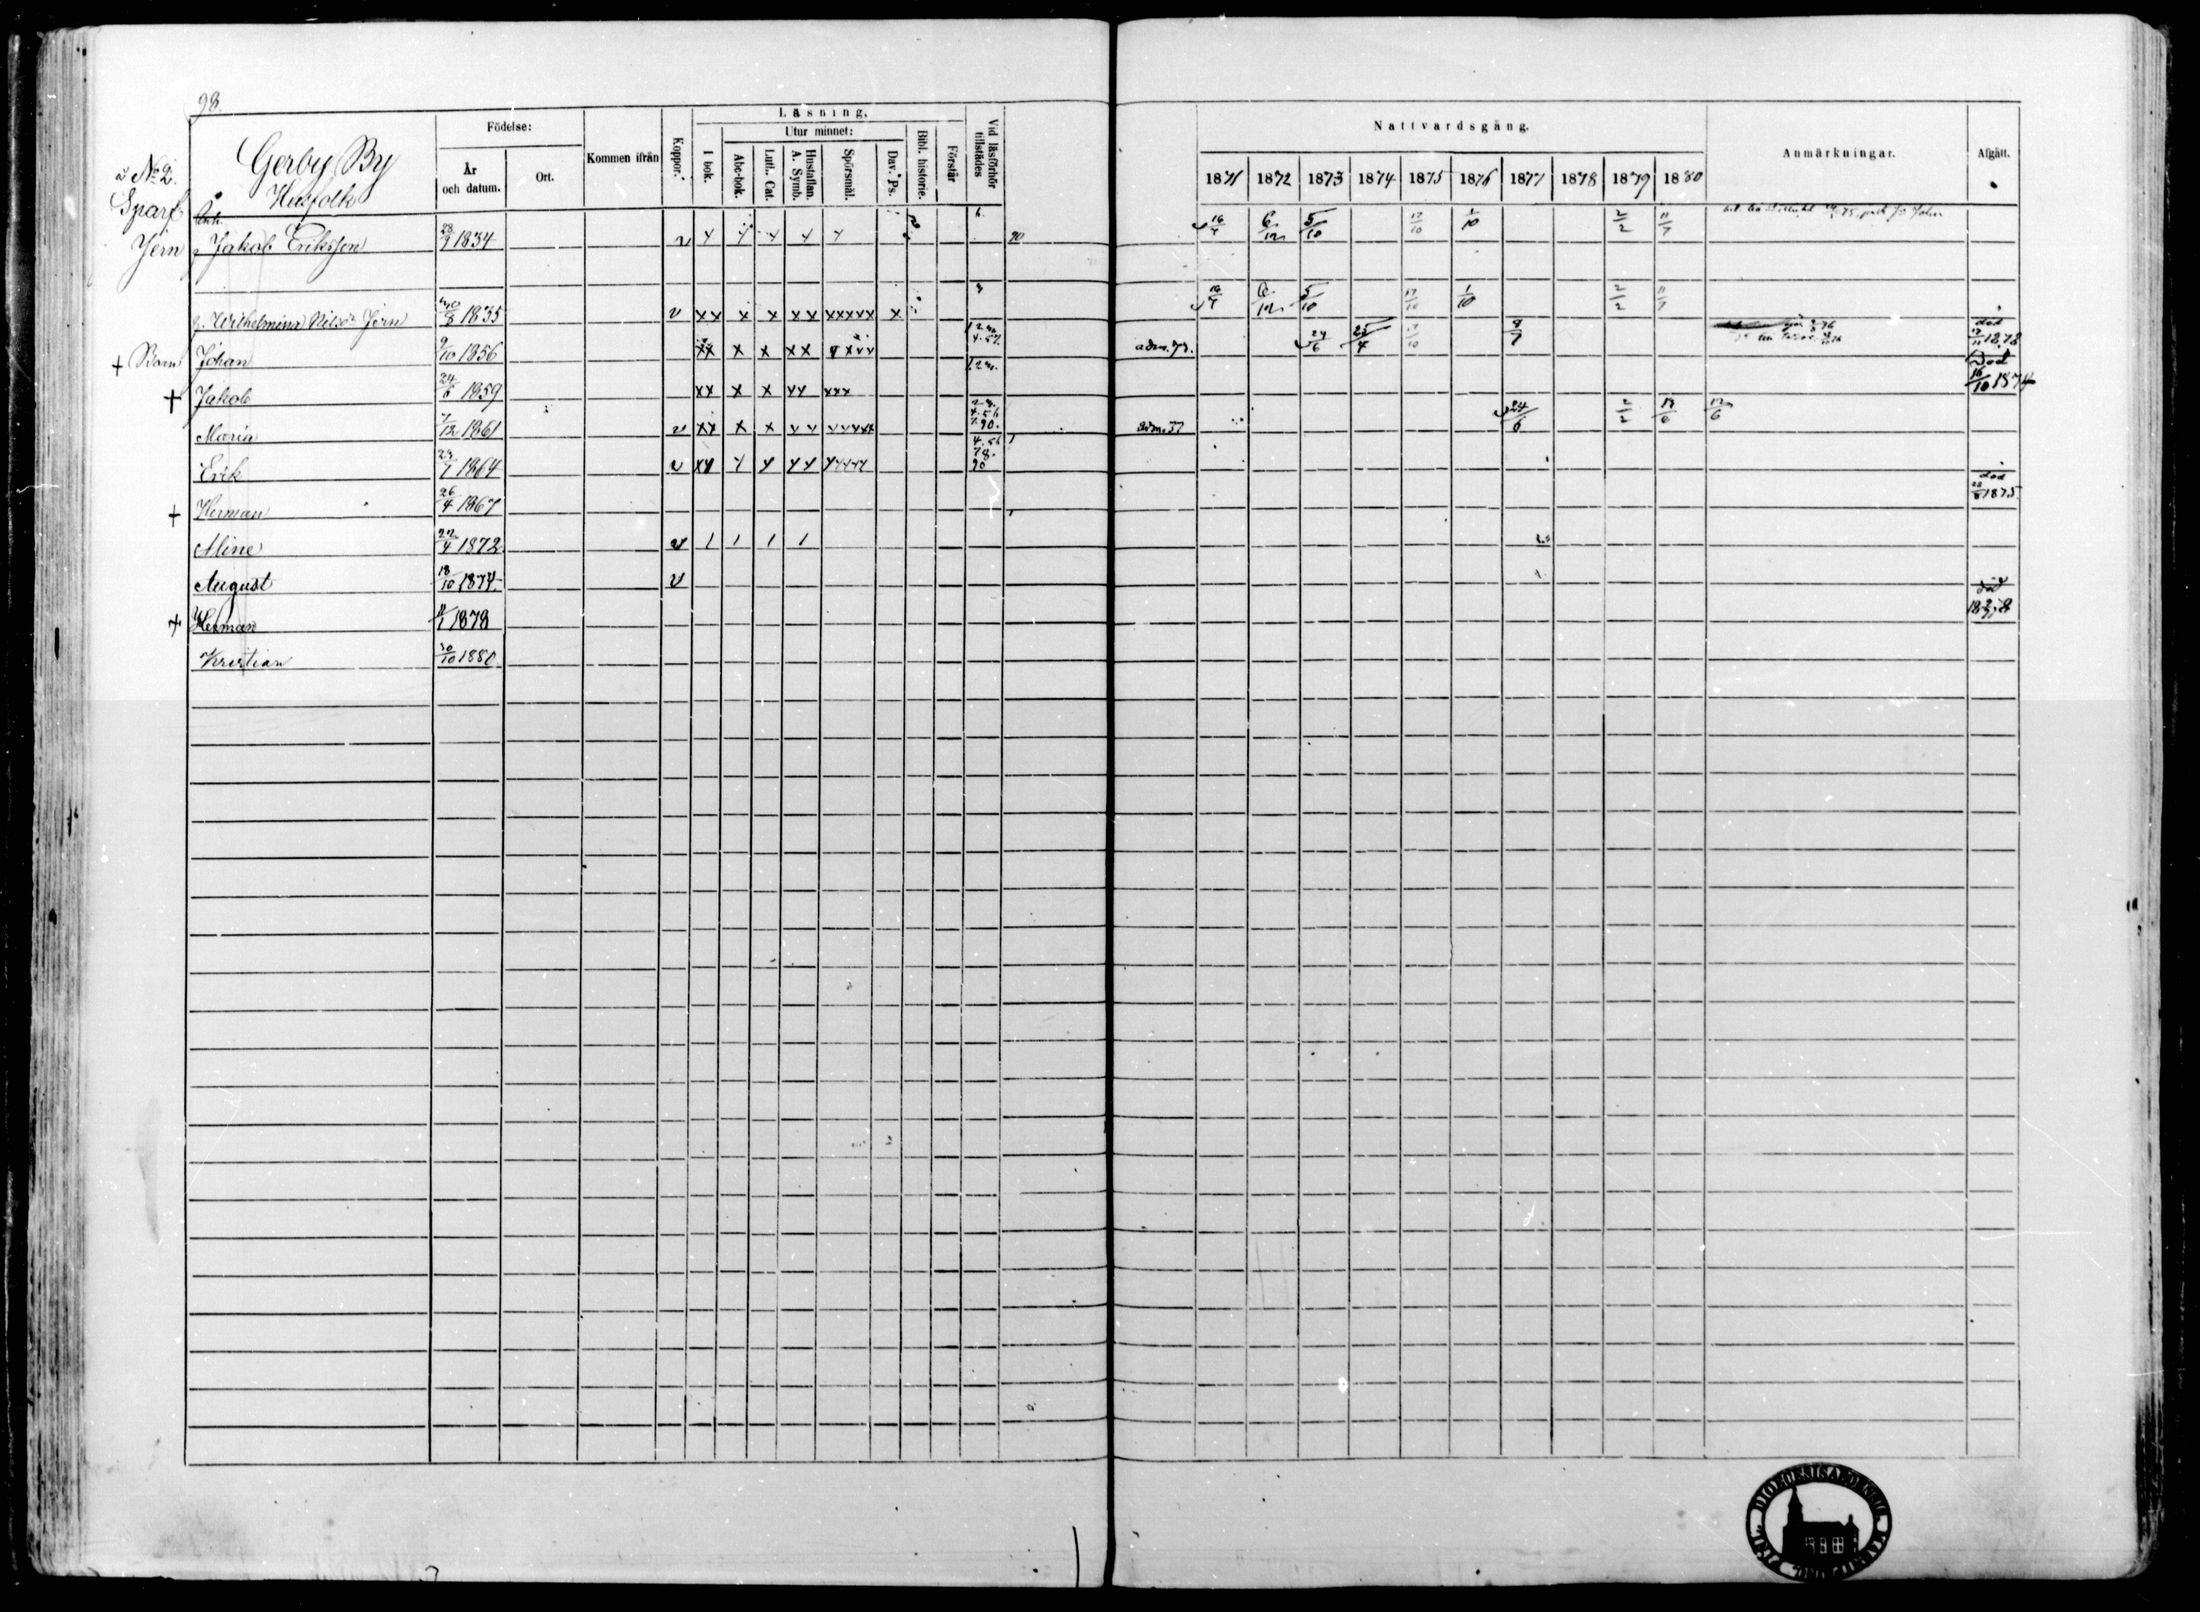 98.
Gerby By
Husfolk
Födelse:
År och datum.
Ort.
Kommen ifrån
Koppor.
Läsning.
I bok.
Utur minnet:
Abc-bok.
Lutl. Cat.
Hustaflan. A. Symb.
Spörsmål.
Dav. Ps.
Bibl. historie.
Förstår
Vid läsförhör tillstädes
Nattvardsgång.
1871 1872 1873 1874 1875 1876 1877 1878 1879 1880
Anmärkningar.
Afgått.
No 2.
Sparf
Jern
Jakob Eriksson 28/9 1834 v 90 16/4 6/12 5/10 17/10 1/10 2/2 11/7
Wilhelmina Nilsdr Jern 1835 v xx x x xx xxxxx x 16/4 6/12 5/10 17/10 1/10 2/2 11/7
+ Barn Johan 9/10 1856 xx x x xx adm. 73. 24/6 25/4 17/10 8/7 död 1878
+ Jakob 24/6 1859 xx x x xxx Död 16/10 1874
Maria 7/12 1861 v xx x x 90. adm. 77 24/6 2/2 13/6 13/6
Erik 23/7 1864 v 78. 90
+ Herman 26/4 1867 död 1875
Aline 22/4 1872 v 1 1 1 1
August 18/10 1874. v
+ Herman 1878 död
Kristian 30/10 1880